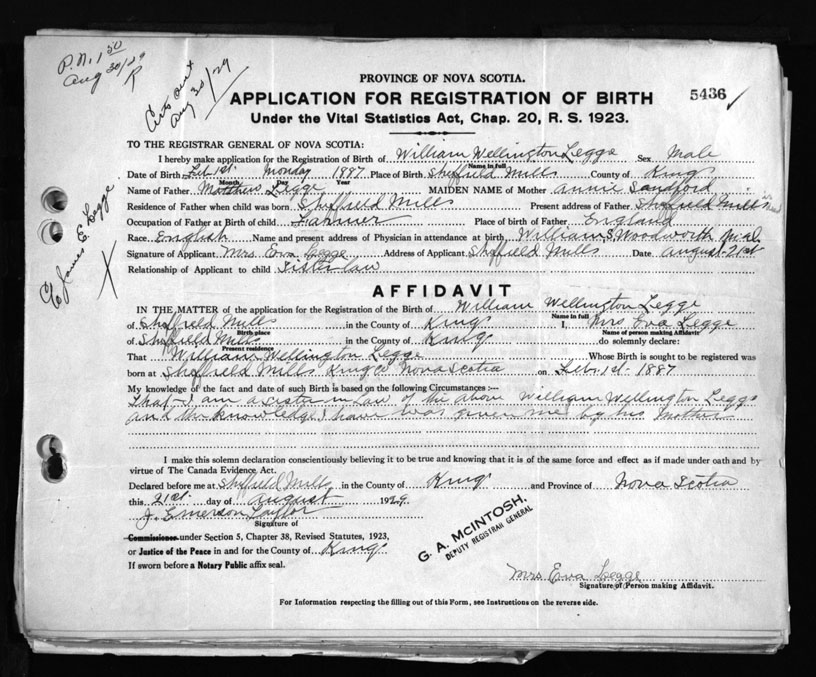 P.N. 1 50
Aug 30/29
R
Certs out
Aug 30/29
C/o James E. Legge
X
PROVINCE OF NOVA SCOTIA.
APPLICATION FOR REGISTRATION OF BIRTH
5436 ✓
Under the Vital Statistics Act, Chap. 20, R. S. 1923.
TO THE REGISTRAR GENERAL OF NOVA SCOTIA:
I hereby make application for the Registration of Birth of William Wellington Legge Sex Male
Name in full
Date of Birth Feb 1st. Monday 1887 Place of Birth Sheffield Mills County of Kings
Month Day Year
Name of Father Legge MAIDEN NAME of Mother Annie Sandford
Residence of Father when child was born Sheffield Mills Present address of Father Sheffield Mills
Occupation of Father at Birth of child Farmer Place of birth of Father England
Race English Name and present address of Physician in attendance at birth William S Woodworth M.d.
Signature of Applicant Mrs Eva Legge Address of Applicant Sheffield Mills Date August-21st
Relationship of Applicant to child Sister law
AFFIDAVIT
IN THE MATTER of the application for the Registration of the Birth of William Wellington Legge
Name in full
of Sheffield Mills in the County of Kings I, Mrs Eva Legge
Birth place Name of person making Affidavit
of Sheffield Mills in the County of Kings do solemnly declare:
Present residence
That William Wellington Legge Whose Birth is sought to be registered was
born at Sheffield Mills Kings Co Nova Scotia on Feb. 1st - 1887
My knowledge of the fact and date of such Birth is based on the following Circumstances :--
That I am a sister in Law of the above William Wellington Legge
and the knowledge I have was given me by his Mother
I make this solemn declaration conscientiously believing it to be true and knowing that it is of the same force and effect as if made under oath and by
virtue of The Canada Evidence Act.
Declared before me at Sheffield Mills in the County of Kings and Province of Nova Scotia
this 21st. day of August 1929.
J. Emerson Taylor
Signature of
Commissioner under Section 5, Chapter 38, Revised Statutes, 1923,
or Justice of the Peace in and for the County of Kings
If sworn before a Notary Public affix seal.
G. A. McINTOSH,
DEPUTY REGISTRAR GENERAL
Mrs Eva Legge
Signature of Person making Affidavit.
For Information respecting the filling out of this Form, see Instructions on the reverse side.